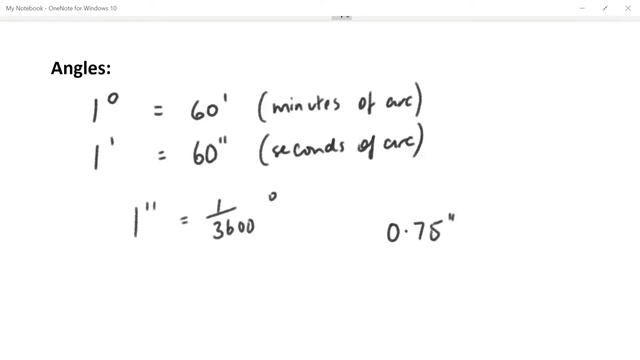 My Notebook - OneNote for Windows 10
Angles:
1° = 60' (minutes of arc)
1' = 60" (seconds of arc)
1" = 1/3600 ° 0.75"